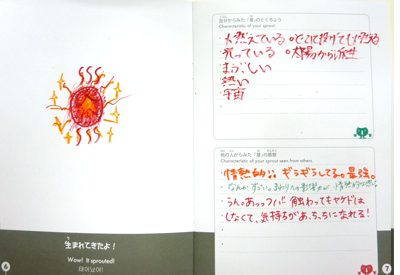 生まれてきたよ！
Wow! It sprouted!
태어났어!
6
自分からみた「芽」のとくちょう
Characteristic of your sprout
燃えている
光っている 太陽から派生
まぶしい
熱い
宇宙
他の人からみた「芽」の感想
Characteristic of your sprout seen from others.
情熱的!! ギラギラしてる。最強。
うん。あっつプ!! 触わってもヤケドは
しなくて、気持ちがあっちっちになれる!
7